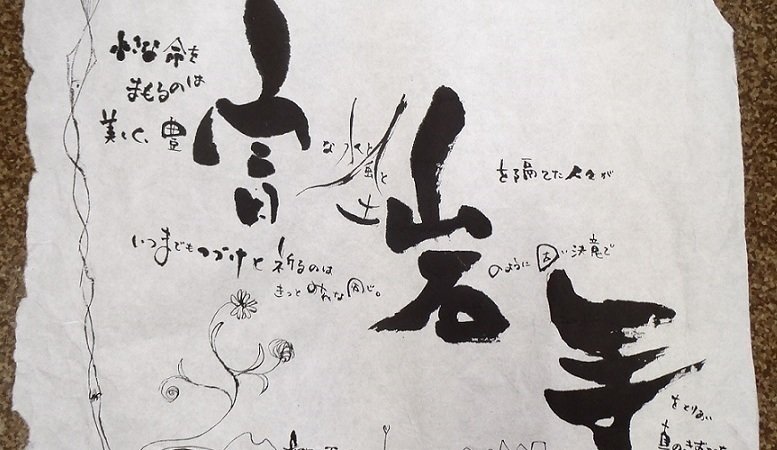 小さな命を
まもるのは
美しく、豊
富
な水と
風と
土
岩
を隔てた人々が
のように固い決意で
手
をとりあい
いつまでもつづけと祈るのは
きっとみんな同じ。